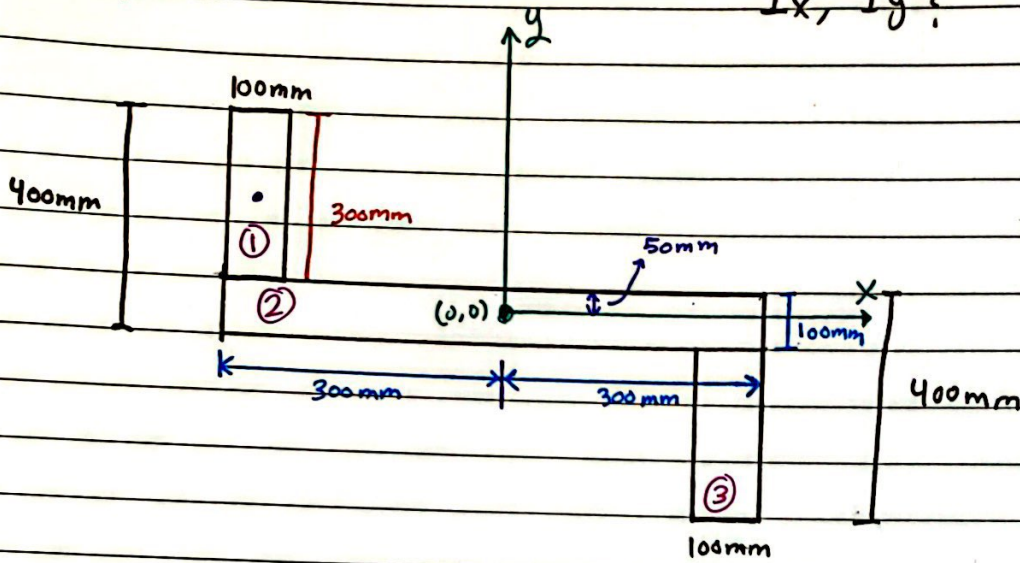 Ix, Iy?
y
100mm
400mm
300mm
①
50mm
②
(0,0)
x
100mm
300mm
300mm
400mm
③
100mm